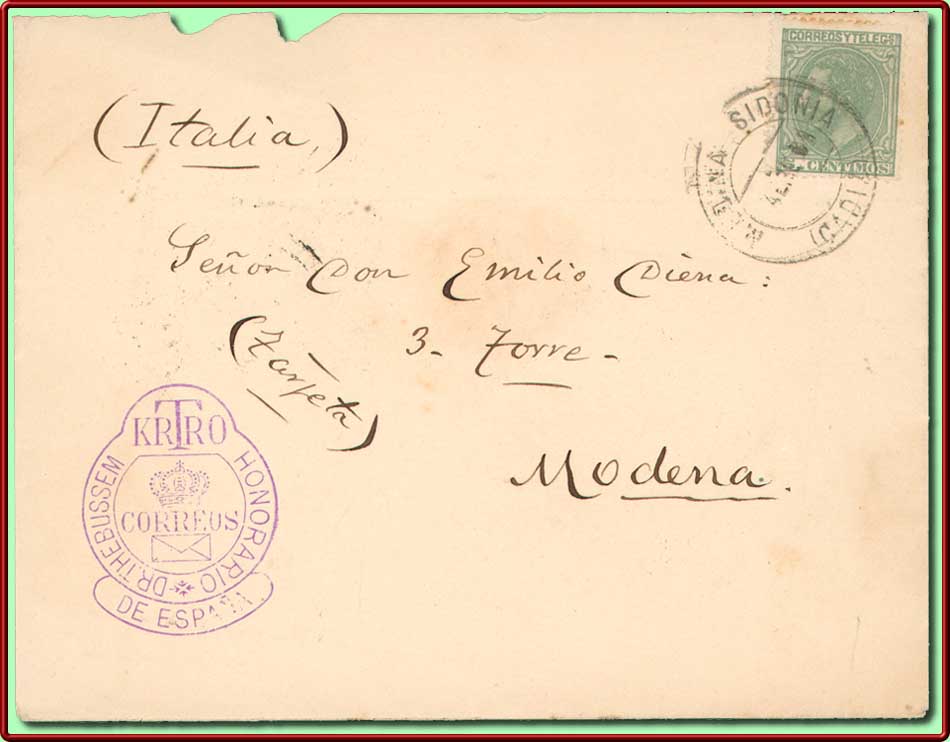 CORREOS Y TELEGS
CENTIMOS
SIDONIA
(CADIZ)
(Italia,)
Señor Don Emilio Diena:
3- Torre-
(Tarjeta)
Modena.
KRTRO
DR. THEBUSSEM HONORARIO
CORREOS
DE ESPAÑA